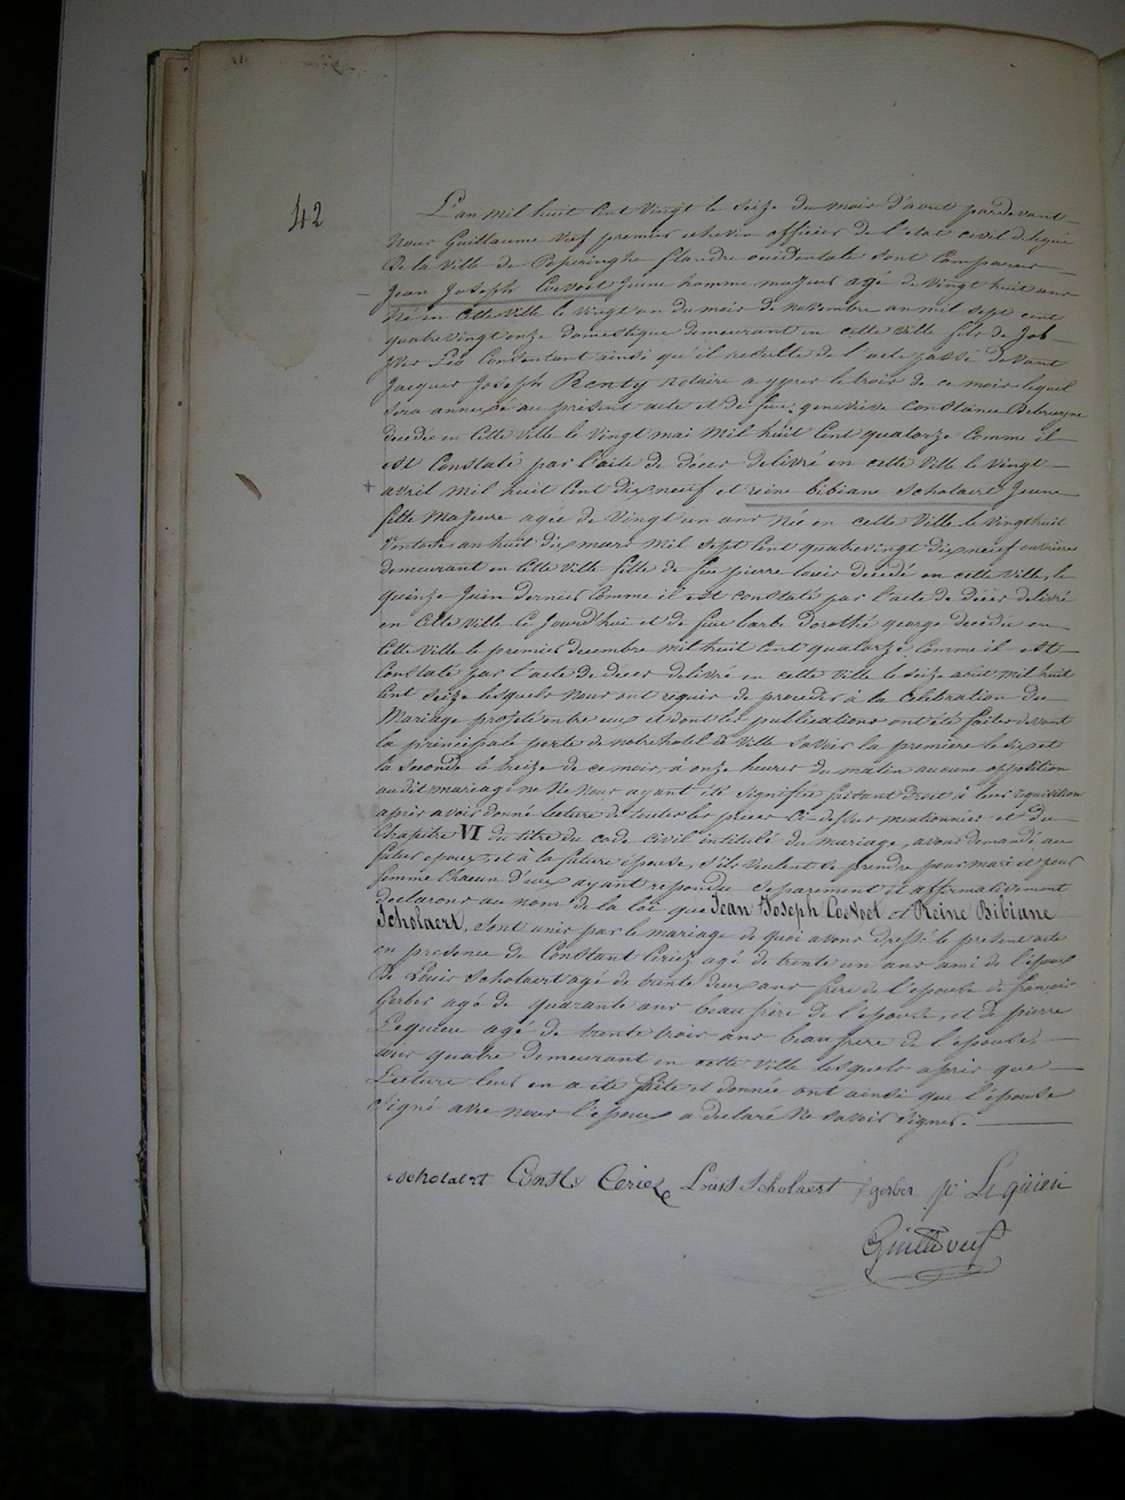 42
L'an mil huit cent vingt le seize du mois d'avril pardevant
Nous Guillaume Veuf premier echevin officier de l'etat civil delegué
De la Ville de Poperinghe flandre occidentale sont Comparus
Jean Joseph Coevoet Jeune homme majeur agé de vingt huit ans
Né en Cette Ville le vingt un du mois de novembre an mil sept cent
quatrevingt onze domestique demeurant en cette ville fils de Job
ici Consentant ainsi qu'il resulte de l'acte passé devant
Jacques Joseph Renty notaire a ypres le trois de ce mois lequel
sera annexé au présent acte et de feue genevieve Constance Debruyne
decedée en Cette Ville le vingt mai Mil huit Cent quatorze Comme il
est Constaté par l'acte de décès delivré en cette ville le vingt
avril mil huit Cent dix neuf et reine bibiane Scholaert Jeune
fille Majeure agée de Vingt un ans Née en cette Ville le vingthuit
Ventose an huit dix mars Mil Sept Cent quatrevingt dix neuf ouvriere
demeurant en Cette Ville fille de feu pierre louis decedé en cette ville, le
quinze Juin dernier Comme il est constaté par l'acte de décès delivré
en Cette Ville Ce Jourd'hui et de feue barbe Dorothé george decedée en
Cette Ville le premier decembre mil huit Cent quatorze Comme il est
Constaté par l'acte de décès delivré en cette Ville le seize août mil huit
Cent seize lesquels Nous ont requis de proceder à la Celebration du
Mariage projeté entre eux et dont les publications ont été faites devant
la principale porte de notre hotel de Ville Savoir la premiere le six et
la Seconde le treize de ce mois, à onze heures du matin aucune opposition
audit mariage ne Nous ayant été signifiée faisant droit à leur requisition
après avoir donné lecture de toutes les pieces ci-dessus mentionnées et du
Chapitre VI du titre du code Civil intitulé du mariage, avons demandé au
futur epoux et à la future épouse, s'ils veulent se prendre pour mari et pour
femme Chacun d'eux ayant repondu separement et affirmativement
declarons au nom de la loi que Jean Joseph Coevoet et Reine Bibiane
Scholaert, sont unis par le mariage de quoi avons dressé le present acte
en presence de Constant Ceriez agé de trente un ans ami de l'époux
De Louis Scholaert agé de trente deux ans frere de l'epouse de françois
Gerber agé de quarante ans beau frère de l'epouse, et de pierre
Lequieu agé de trente trois ans beau frere de l'epouse,
tous quatre demeurant en cette ville lesquels après que
Lecture leur en a été faite et donnée ont ainsi que l'épouse
signé avec nous l'epoux a declaré Ne savoir signer.
scholaert Const Ceriez Louis Scholaert f gerber p: Lequieu
Guille veuf